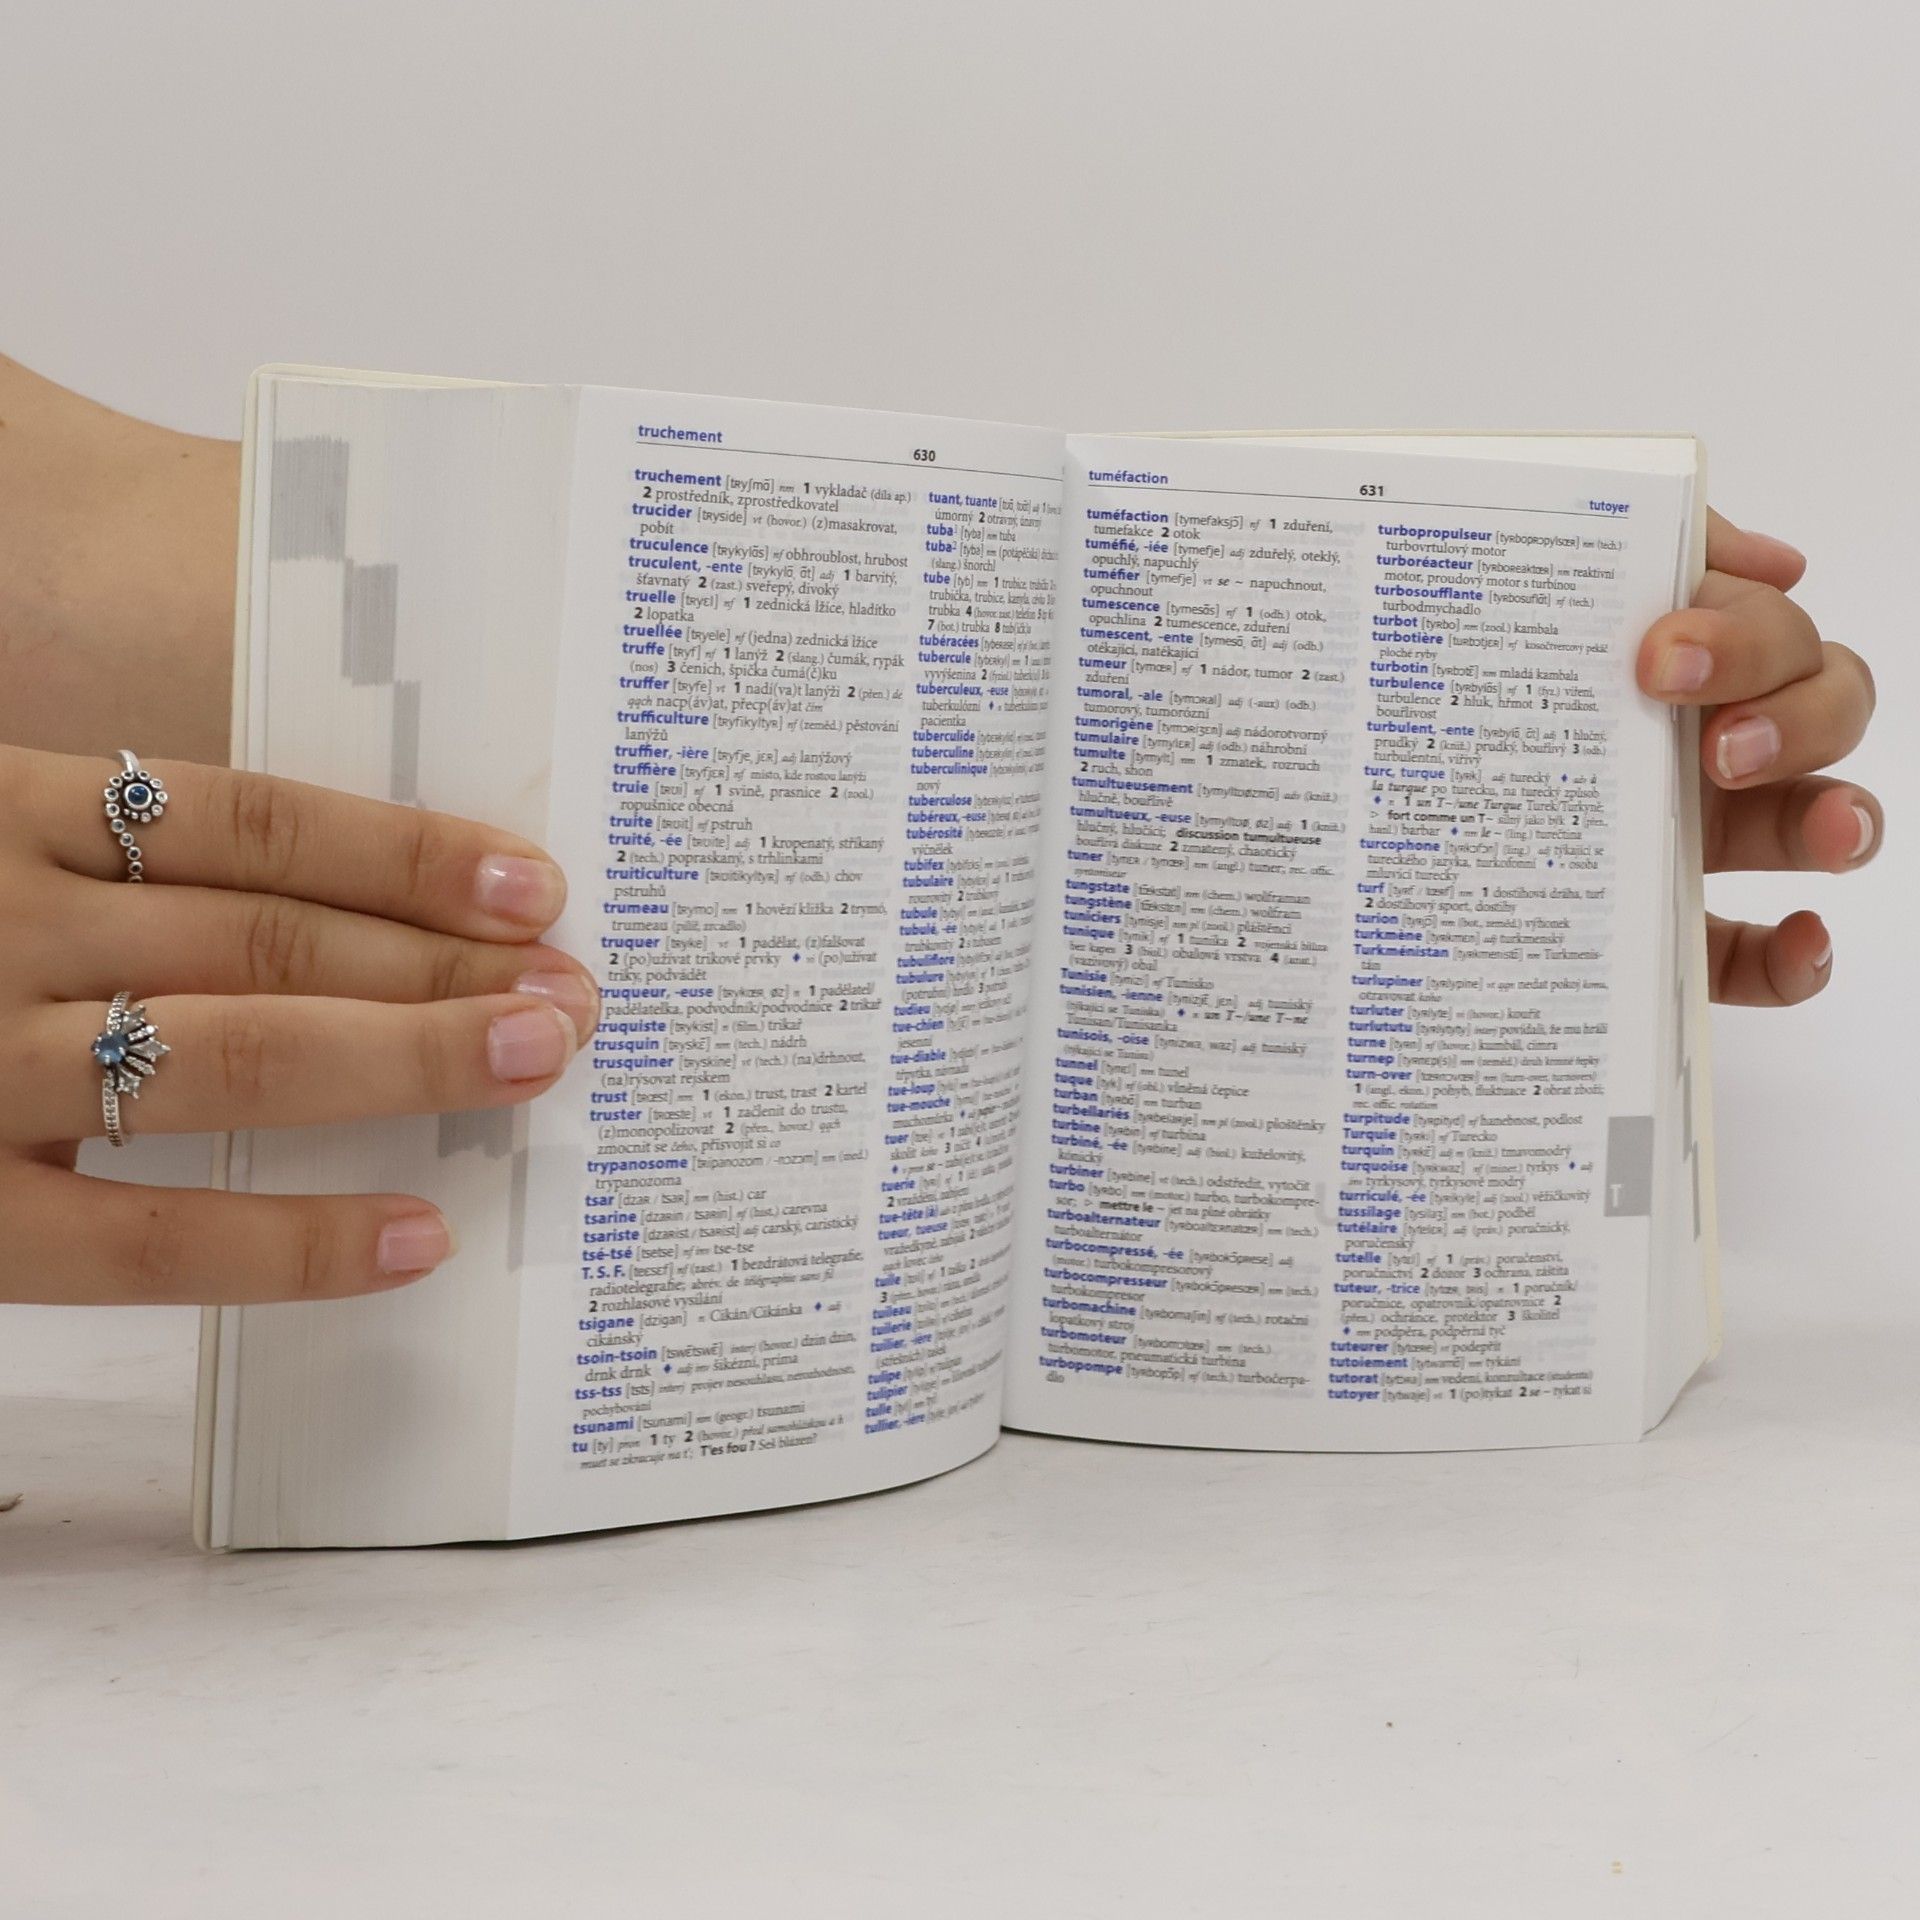 truchement
630
truchement [tʀyʃmɑ̃] nm 1 vykladač (díla ap.)
2 prostředník, zprostředkovatel
trucider [tʀyside] vt (hovor.) (z)masakrovat,
pobít
truculence [tʀykylɑ̃s] nf obhroublost, hrubost
truculent, -ente [tʀykylɑ̃, ɑ̃t] adj 1 barvitý,
šťavnatý 2 (zast.) sveřepý, divoký
truelle [tʀyɛl] nf 1 zednická lžíce, hladítko
2 lopatka
truellée [tʀyele] nf (jedna) zednická lžíce
truffe [tʀyf] nf 1 lanýž 2 (slang.) čumák, rypák
(nos) 3 čenich, špička čumá(č)ku
truffer [tʀyfe] vt 1 nadí(va)t lanýži 2 (přen.) de
qqch nacp(áv)at, přecp(áv)at čím
trufficulture [tʀyfikyltyʀ] nf (zeměd.) pěstování
lanýžů
truffier, -ière [tʀyfje, jɛʀ] adj lanýžový
truffière [tʀyfjɛʀ] nf místo, kde rostou lanýži
truie [tʀɥi] nf 1 svině, prasnice 2 (zool.)
ropušnice obecná
truite [tʀɥit] nf pstruh
truité, -ée [tʀɥite] adj 1 kropenatý, stříkaný
2 (tech.) popraskaný, s trhlinkami
truiticulture [tʀɥitikyltyʀ] nf (odb.) chov
pstruhů
trumeau [tʀymo] nm 1 hovězí kližka 2 trymó,
trumeau (pilíř, zrcadlo)
truquer [tʀyke] vt 1 padělat, (z)falšovat
2 (po)užívat trikové prvky ♦ vi (po)užívat
triky, podvádět
truqueur, -euse [tʀykœʀ, øz] n 1 padělatel/
padělatelka, podvodník/podvodnice 2 trikař
truquiste [tʀykist] n (film.) trikař
trusquin [tʀyskɛ̃] nm (tech.) nádrh
trusquiner [tʀyskine] vt (tech.) (na)drhnout,
(na)rýsovat rejskem
trust [tʀœst] nm 1 (ekon.) trust, trast 2 kartel
truster [tʀœste] vt 1 začlenit do trustu,
(z)monopolizovat 2 (přen., hovor.) qqch
zmocnit se čeho, přisvojit si co
trypanosome [tʀipanozom / -nɔzɔm] nm (med.)
trypanozoma
tsar [dzaʀ / tsaʀ] nm (hist.) car
tsarine [dzaʀin / tsaʀin] nf (hist.) carevna
tsariste [dzaʀist / tsaʀist] adj carský, caristický
tsé-tsé [tsetse] nf inv tse-tse
T. S. F. [teɛsɛf] nf (zast.) 1 bezdrátová telegrafie,
radiotelegrafie; abrév. de télégraphie sans fil
2 rozhlasové vysílání
tsigane [dzigan] n Cikán/Cikánka ♦ adj
cikánský
tsoin-tsoin [tswɛ̃tswɛ̃] interj (hovor.) dzin dzin,
drnk drnk ♦ adj inv šikézní, prima
tss-tss [tsts] interj projev nesouhlasu, nerozhodnosti,
pochybování
tsunami [tsunami] nm (geogr.) tsunami
tu [ty] pron 1 ty 2 (hovor.) před samohláskou a h
muet se zkracuje na t'; T'es fou ? Seš blázen?
tuant, tuante
úmorný 2 otravný, únavný
tuba¹ [tyba] nm tuba
tuba² [tyba] nm (potápěčská)
(slang.) šnorchl
tube [tyb] nm 1 trubice, trubka
trubička, trubice, kanyla
trubka 4 (hovor. zast.) telefon
7 (bot.) trubka 8
tubéracées
tubercule
vyvýšenina 2
tuberculeux, -euse
tuberkulózní ♦
pacientka
tuberculide
tuberculine
tuberculinique
nový
tuberculose
tubéreux, -euse
tubérosité
výčnělek
tubifex
tubulaire
rourovitý 2
tubule
tubulé, -ée
trubkovitý 2
tubuliflore
tubulure
(potrubní) hrdlo 3
tudieu
tue-chien
jesenní
tue-diable
třpytka
tue-loup
tue-mouche
muchomůrka
tuer
tuerie
2 vraždění
tue-tête (à)
tueur, tueuse
tuile
tuileau
tuilerie
tuilier, -ière
tulipe
tulipier
tulle
tullier, -ière
tuméfaction
631
tutoyer
tuméfaction [tymefaksjɔ̃] nf 1 zduření,
tumefakce 2 otok
tuméfié, -iée [tymefje] adj zduřelý, oteklý,
opuchlý, napuchlý
tuméfier [tymefje] vt se ~ napuchnout,
opuchnout
tumescence [tymesɑ̃s] nf 1 (odb.) otok,
opuchlina 2 tumescence, zduření
tumescent, -ente [tymesɑ̃, ɑ̃t] adj (odb.)
otékající, natékající
tumeur [tymœʀ] nf 1 nádor, tumor 2 (zast.)
zduření
tumoral, -ale [tymɔʀal] adj (-aux) (odb.)
tumorový, tumorózní
tumorigène [tymɔʀiʒɛn] adj nádorotvorný
tumulaire [tymylɛʀ] adj (odb.) náhrobní
tumulte [tymylt] nm 1 zmatek, rozruch
2 ruch, shon
tumultueusement [tymyltɥøzmɑ̃] adv (kniž.)
hlučně, bouřlivě
tumultueux, -euse [tymyltɥø, øz] adj 1 (kniž.)
hlučný, hlučící; discussion tumultueuse
bouřlivá diskuse 2 zmatený, chaotický
tuner [tynɛʀ / tynœʀ] nm (angl.) tuner; rec. offic.
syntoniseur
tungstate [tœ̃kstat] nm (chem.) wolframan
tungstène [tœ̃kstɛn] nm (chem.) wolfram
tuniciers [tynisje] nm pl (zool.) pláštěnci
tunique [tynik] nf 1 tunika 2 vojenská blůza
bez kapes 3 (biol.) obalová vrstva 4 (anat.)
(vazivový) obal
Tunisie [tynizi] nf Tunisko
tunisien, -ienne [tynizjɛ̃, jɛn] adj tuniský
(týkající se Tuniska) ♦ n un T~/une T~ne
Tunisan/Tunisanka
tunisois, -oise [tynizwa, waz] adj tuniský
(týkající se Tunisu)
tunnel [tynɛl] nm tunel
tuque [tyk] nf (obl.) vlněná čepice
turban [tyʀbɑ̃] nm turban
turbellariés [tyʀbelaʀje] nm pl (zool.) ploštěnky
turbine [tyʀbin] nf turbína
turbiné, -ée [tyʀbine] adj (biol.) kuželovitý,
kónický
turbiner [tyʀbine] vt (tech.) odstředit, vytočit
turbo [tyʀbo] nm (motor.) turbo, turbokompre-
sor; ▷ mettre le ~ jet na plné obrátky
turboalternateur [tyʀboaltɛʀnatœʀ] nm (tech.)
turboalternátor
turbocompressé, -ée [tyʀbokɔ̃pʀese] adj
(motor.) turbokompresorový
turbocompresseur [tyʀbokɔ̃pʀesœʀ] nm (tech.)
turbokompresor
turbomachine [tyʀbomaʃin] nf (tech.) rotační
lopatkový stroj
turbomoteur [tyʀbomotœʀ] nm (tech.)
turbomotor, pneumatická turbína
turbopompe [tyʀbopɔ̃p] nf (tech.) turbočerpa-
dlo
turbopropulseur [tyʀbopʀɔpylsœʀ] nm (tech.)
turbovrtulový motor
turboréacteur [tyʀboʀeaktœʀ] nm reaktivní
motor, proudový motor s turbínou
turbosoufflante [tyʀbosuflɑ̃t] nf (tech.)
turbodmychadlo
turbot [tyʀbo] nm (zool.) kambala
turbotière [tyʀbɔtjɛʀ] nf kosočtvercový pekáč
ploché ryby
turbotin [tyʀbɔtɛ̃] nm mladá kambala
turbulence [tyʀbylɑ̃s] nf 1 (fyz.) víření,
turbulence 2 hluk, hřmot 3 prudkost,
bouřlivost
turbulent, -ente [tyʀbylɑ̃, ɑ̃t] adj 1 hlučný,
prudký 2 (kniž.) prudký, bouřlivý 3 (odb.)
turbulentní, vířivý
turc, turque [tyʀk] adj turecký ♦ adv à
la turque po turecku, na turecký způsob
♦ n 1 un T~/une Turque Turek/Turkyně;
▷ fort comme un T~ silný jako býk 2 (přen.,
hanl.) barbar ♦ nm le ~ (ling.) turečtina
turcophone [tyʀkɔfɔn] (ling.) adj týkající se
tureckého jazyka, turkofonní ♦ n osoba
mluvící turecky
turf [tyʀf / tœʀf] nm 1 dostihová dráha, turf
2 dostihový sport, dostihy
turion [tyʀjɔ̃] nm (bot., zeměd.) výhonek
turkmène [tyʀkmɛn] adj turkmenský
Turkménistan [tyʀkmenistɑ̃] nm Turkmenis-
tán
turlupiner [tyʀlypine] vt qqn nedat pokoj komu,
otravovat koho
turluter [tyʀlyte] vt (hovor.) kouřit
turlututu [tyʀlytyty] interj povídali, že mu hráli
turne [tyʀn] nf (hovor.) kumbál, cimra
turnep [tyʀnɛp(s)] nm (zeměd.) druh krmné řepky
turn-over [tœʀnɔvœʀ] nm (turn-over, turnovers)
1 (angl., ekon.) pohyb, fluktuace 2 obrat zboží;
rec. offic. rotation
turpitude [tyʀpityd] nf hanebnost, podlost
Turquie [tyʀki] nf Turecko
turquin [tyʀkɛ̃] adj m (kniž.) tmavomodrý
turquoise [tyʀkwaz] nf (miner.) tyrkys ♦ adj
inv tyrkysový, tyrkysově modrý
turriculé, -ée [tyʀikyle] adj (zool.) věžičkovitý
tussilage [tysilaʒ] nm (bot.) podběl
tutélaire [tytelɛʀ] adj (práv.) poručnický,
poručenský
tutelle [tytɛl] nf 1 (práv.) poručenství,
poručnictví 2 dozor 3 ochrana, záštita
tuteur, -trice [tytœʀ, tʀis] n 1 poručník/
poručnice, opatrovník/opatrovnice 2
(přen.) ochránce, protektor 3 školitel
♦ nm podpěra, podpěrná tyč
tuteurer [tytœʀe] vt podepřít
tutoiement [tytwamɑ̃] nm tykání
tutorat [tytɔʀa] nm vedení, konzultace (studentů)
tutoyer [tytwaje] vt 1 (po)tykat 2 se ~ tykat si
T